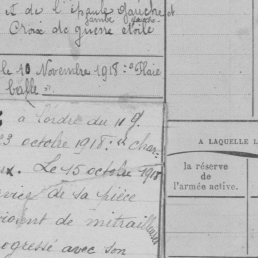 et de l'épaule gauche et
jambe gauche
Croix de guerre étoile
le 10 Novembre 1918: "Plaie
balle."
à l'ordre du n° 9
23 octobre 1918: "chas
ux. Le 15 octobre 1918
de sa pièce
de mitrailleuses
ogressé avec son
A LAQUELLE L
la réserve
de
l'armée active.